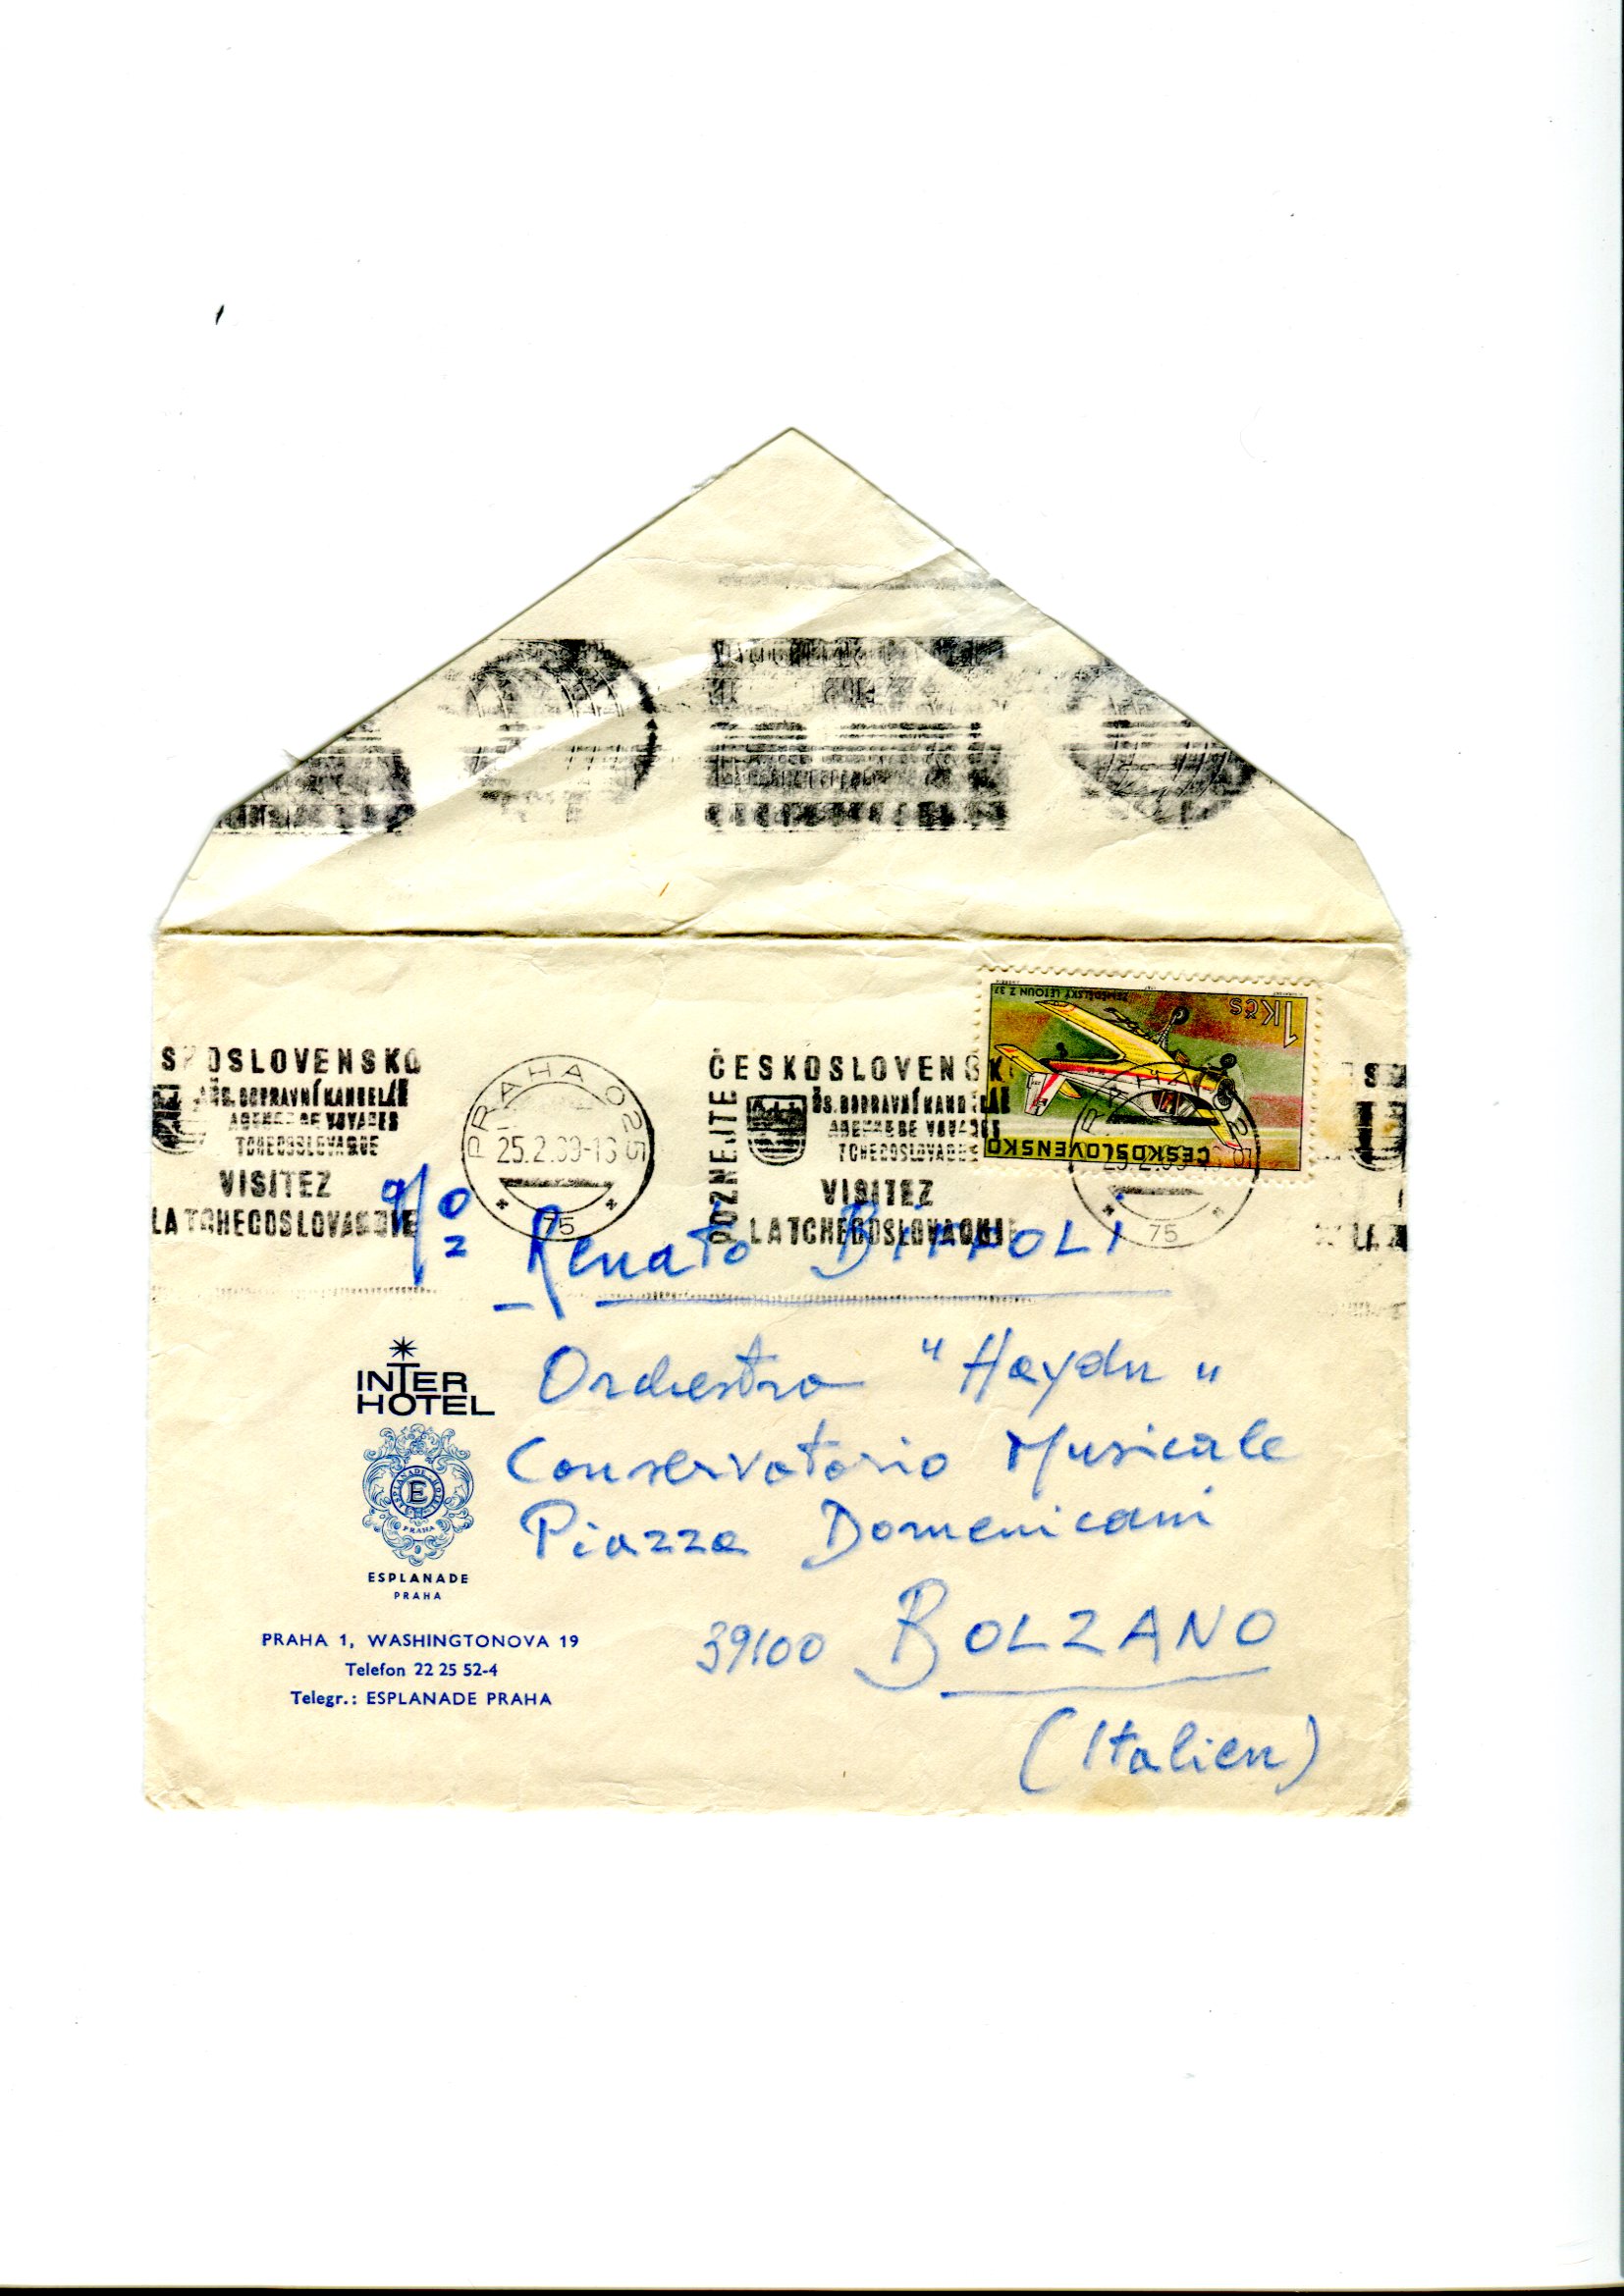 SKOSLOVENSKO
ČS. DOPRAVNÍ KANCELÁŘ
AGENCE DE VOYAGES
TCHECOSLOVAQUE
VISITEZ
LA TCHECOSLOVAQUIE
PRAHA 025
25.2.69-16
75
POZNEJTE
ČESKOSLOVENSK
ČS. DOPRAVNÍ KANCELÁŘ
AGENCE DE VOYAGES
TCHECOSLOVAQUE
VISITEZ
LA TCHECOSLOVAQUIE
ZEMĚDĚLSKÝ LETOUN Z 37
1 Kčs
ČESKOSLOVENSKO
75
Renato BIFFOLI
Orchestra "Haydn"
Conservatorio Musicale
Piazza Domenicani
39100 BOLZANO
(Italien)
INTER
HOTEL
ESPLANADE HOTEL
E
PRAHA
ESPLANADE
PRAHA
PRAHA 1, WASHINGTONOVA 19
Telefon 22 25 52-4
Telegr.: ESPLANADE PRAHA